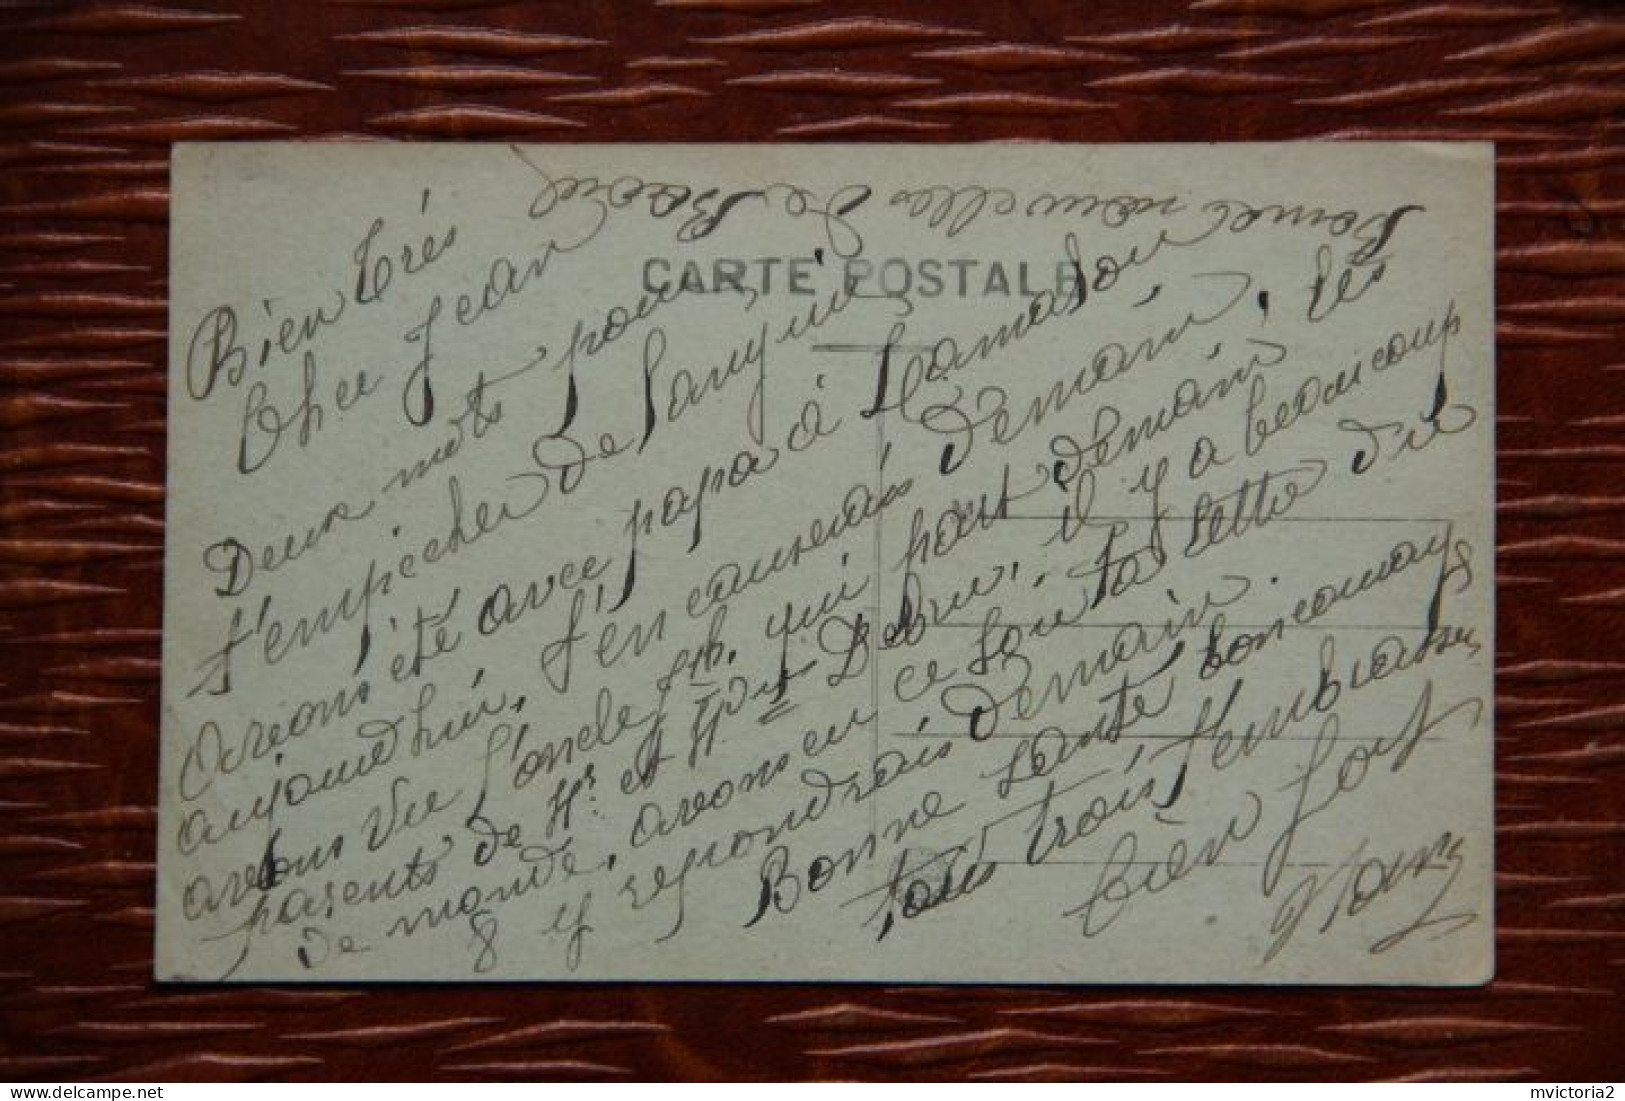 Bonnes nouvelles de Baoué
CARTE POSTALE
Bien très
Cher Jean
Deux mots pour
t'empêcher de languir
avons été avec papa à Lamalou
aujourd'hui, t'en causerais demain,
avons vu l'oncle Jph. qui part demain, les
parents de Mr et Mme Debru, il y a beaucoup
de monde, avons eu ce soir ta lettre du
8 y repondrais demain.
Bonne santé bon courage
tous trois t'embrassons
bien fort
mvictoria2